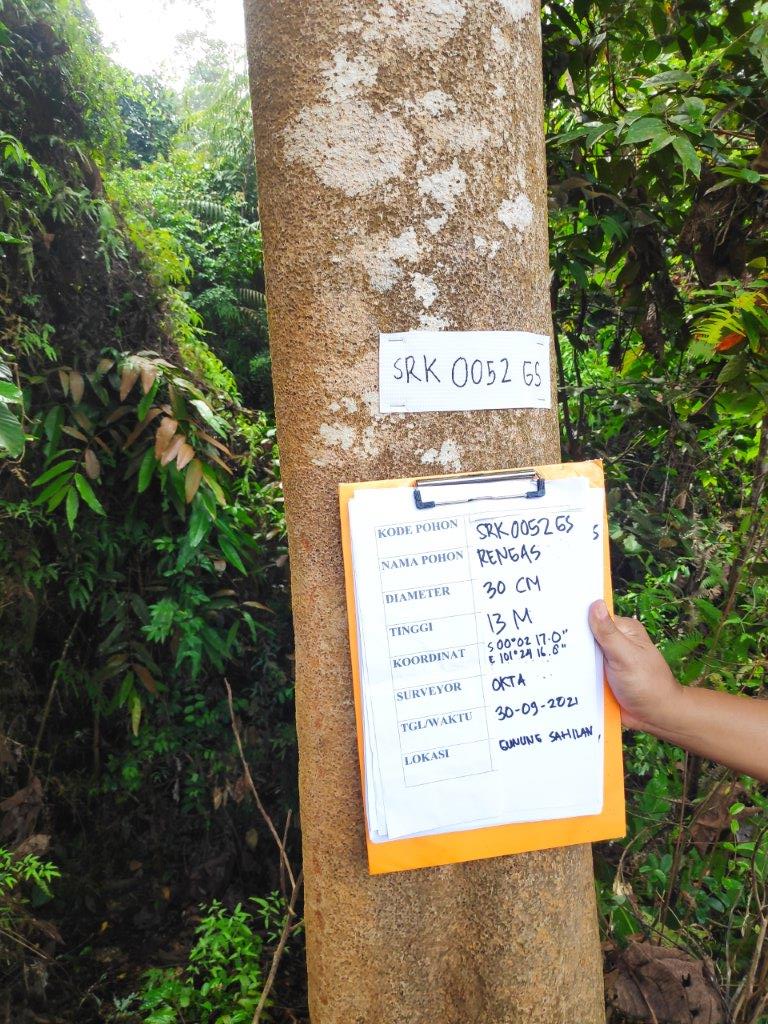 SRK 0052 GS
KODE POHON SRK 0052 GS S
NAMA POHON RENGAS
DIAMETER 30 CM
TINGGI 13 M
KOORDINAT S 00°02 17.0"
E 101°24 16.8"
SURVEYOR OKTA
TGL/WAKTU 30-09-2021
LOKASI GUNUNG SAHILAN,